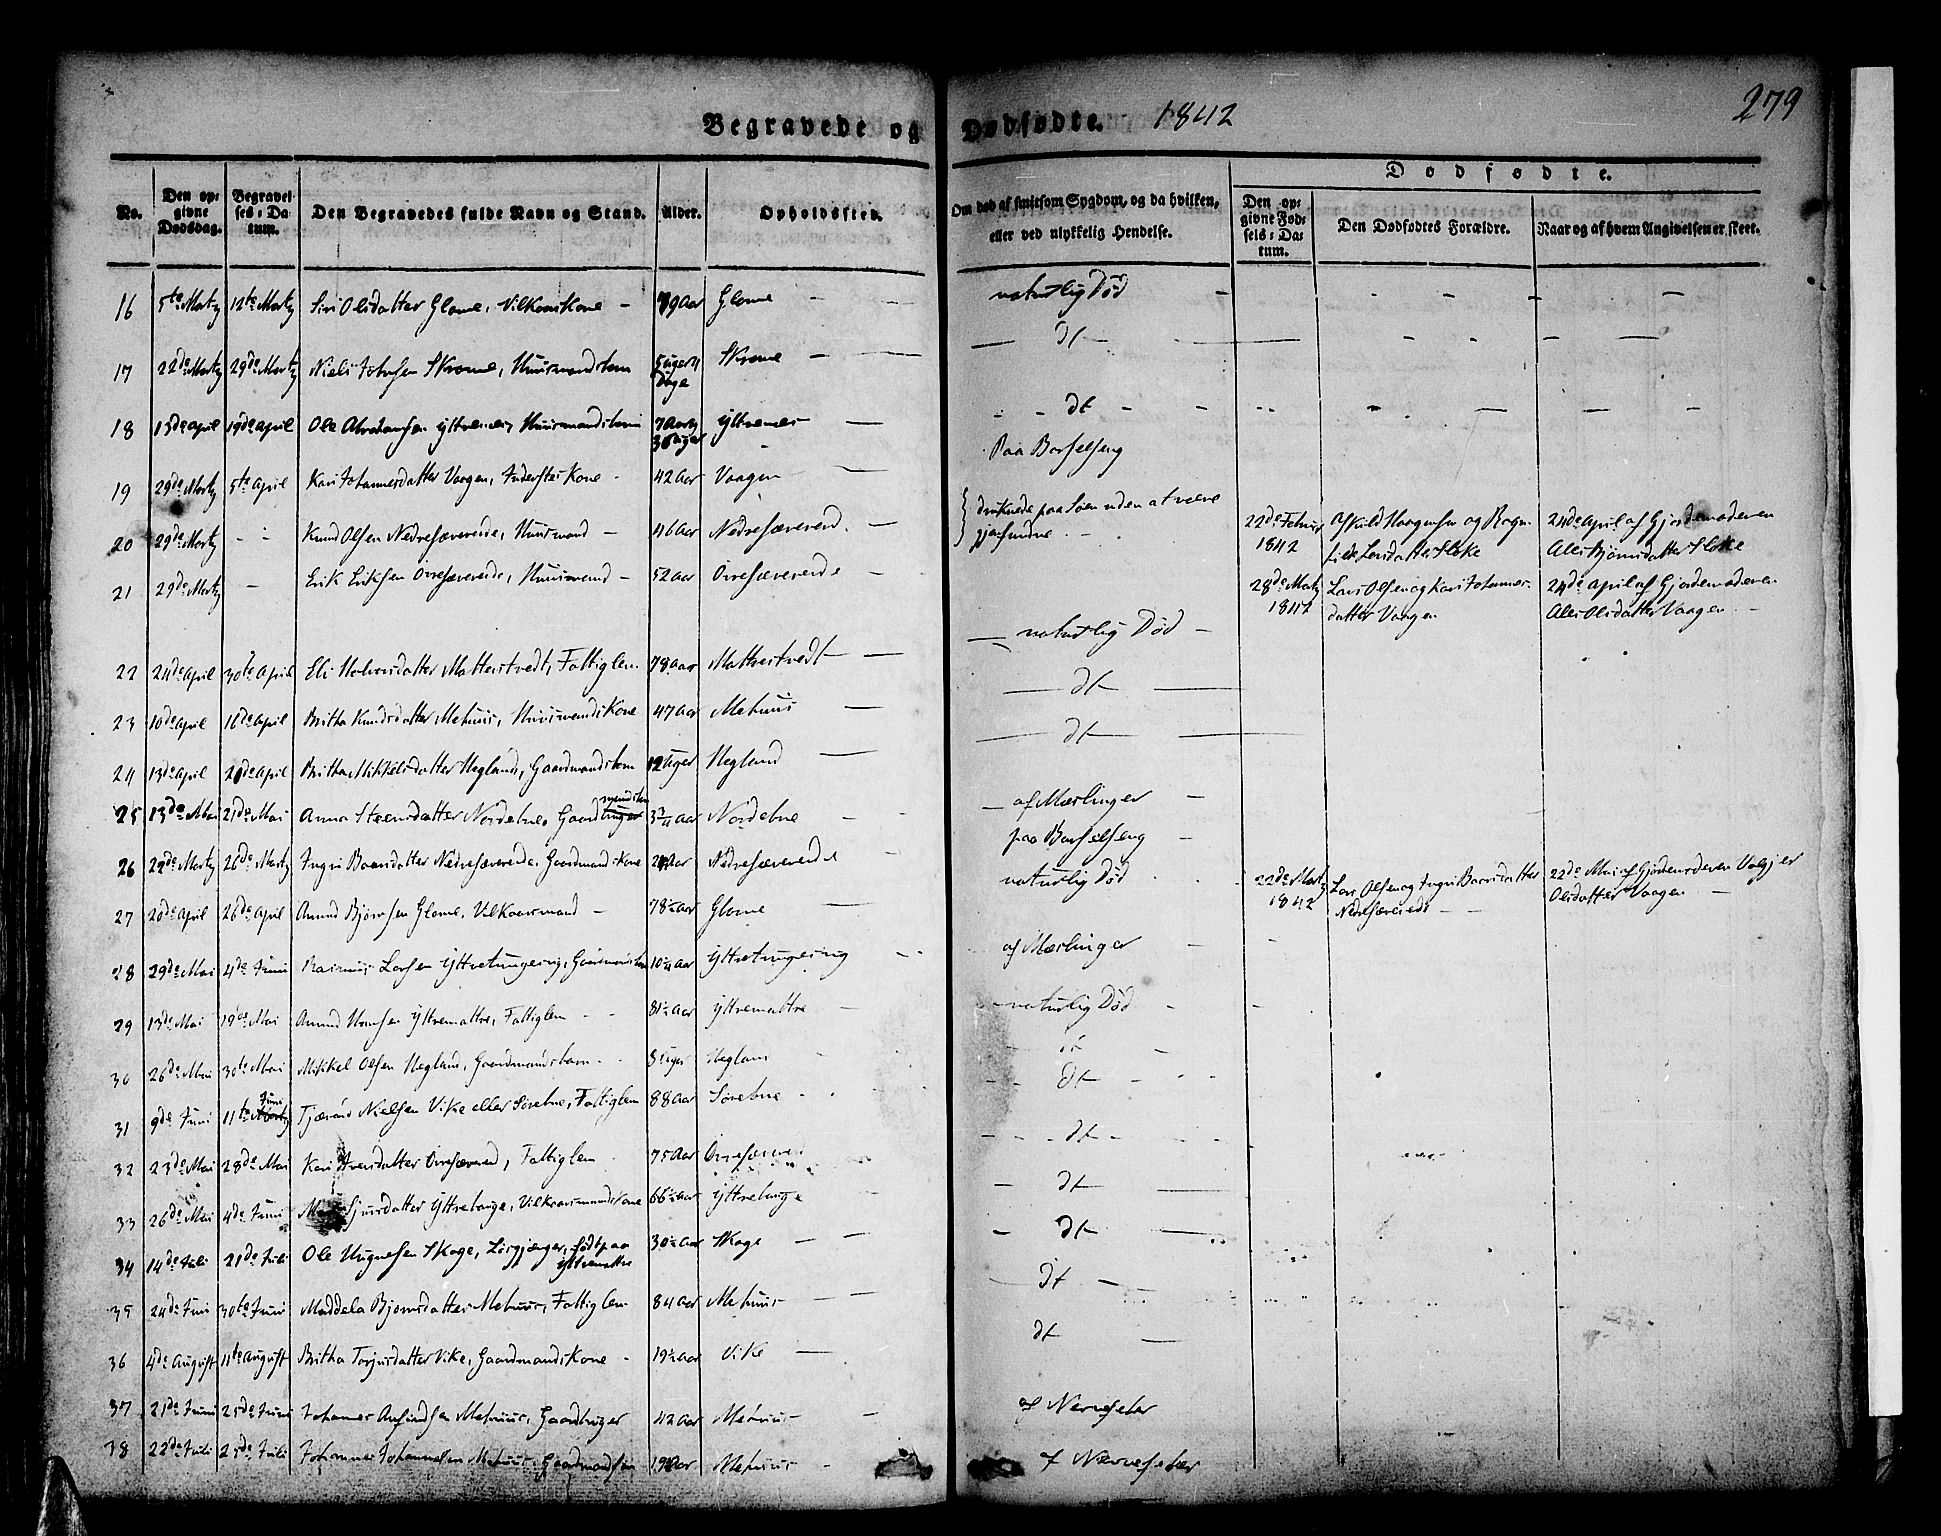 Begravede og Dødfødte. 1842 279
No.
Den opgivne Dødsdag.
Begravelses-Datum.
Den Begravedes fulde Navn og Stand.
Alder.
Opholdssted.
Om død af smitsom Sygdom, og da hvilken, eller ved ulykkelig Hendelse.
Dødfødte.
Den opgivne Fødsels-Datum.
Den Dødfødtes Forældre.
Naar og af hvem Angivelsen er skeet.
16 5te Martz 12te Martz Siri Olsdatter Glome, Vilkaarskone – 79 Aar Glome – naturlig Død –
17 22de Martz 29de Martz Niels Johnsen Skrome, Huusmandsbarn 5 uger 4 Dage Skrome – dt –
18 13de april 19de april Ole Abrahamsen Yttrenes, Huusmandsbarn 7 Aar Yttrenes – dt –
19 29de Martz 5te april Kari Johannesdatter Vaagen, Inderstes Kone 42 Aar Vaagen – Paa Barselseng
20 29de Martz – Knud Olsen Nedresævereide, Huusmand – 46 Aar Nedresævereid. – druknede paa Søen uden at være gjenfundne
21 29de Martz – Erik Eriksen Øvresævereide, Huusmand – 52 Aar Øvresævereide –
22de Februar 1842 Askild Haagensen og Larsdatter 24de April af Gjordemoderen Bjørnsdatter
28de Martz 1842 Lars Olsen og Kari Johannesdatter Vaagen 24de April af Gjordemoderen Olsdatter Vaagen –
22 24de april 30te april Eli Halvorsdatter Matterstvedt, Fattiglem 78 aar Matterstvedt – naturlig Død –
23 10de april 16de april Britha Knudsdatter Mehuus, Huusmandskone 47 Aar Mehuus – dt –
24 13de april 20de april Britha Mikkelsdatter Hegland, Gaardmandsbarn 12 uger Hegland – dt –
25 13de Mai 21de Mai Anna Steensdatter Nordebne, Gaardmandsbarn Aar Nordebne – af Mæslinger –
26 22de Martz 26de Martz Ingri Baarsdatter Nedresævereide, Gaardmands Kone Aar Nedresævereide – paa Barselseng –
27 20de April 26de April Amund Bjørnsen Glome, Vilkaarsmand – 78½ Aar Glome – naturlig Død
22de Martz 1842 Lars Olsen og Ingri Baarsdatter Nedresævereide – 22de Mai af Gjordemoderen Olsdatter Vaagen –
28 29de Mai 4de Juni Rasmus Larsen Yttretungesvig, Gaardmandsbarn Aar Yttretungesvig af Mæslinger –
29 13de Mai 19de Mai Amund Hansen Yttremattre, Fattiglem – 81½ Aar Yttremattre – naturlig Død –
30 26de Mai 30te Mai Mikkel Olsen Hegland, Gaardmandsbarn – 8 uger Hegland dt –
31 9de Juni 11te Juni Nielsen Vike eller Sørebne, Fattiglem 88 Aar Sørebne dt –
32 23de Mai 28de Mai Kari Iversdatter Øvresævereid, Fattiglem 75 Aar Øvresævereid – dt –
33 26de Mai 4de Juni Sjursdatter Yttrehauge, Vilkaarsmandskone 66½ Aar Yttrehauge – dt –
34 14de Juli 21de Juli Ole Magnesen Skoge, født paa Yttremattre 30½ Aar Skoge – – dt –
35 24de Juni 30te Juni Maddela Bjørnsdatter Mehuus, Fattiglem 84 Aar Mehuus – – dt –
36 4de August 11te August Britha Torjusdatter Vike, Gaardmandskone – 19½ Aar Vike – dt –
37 21de Juni 25de Juni Johannes Mehuus, Gaardbruger 42 Aar Mehuus – af Nervefeber
38 22de Juli 25de Juli Johannes Johannesen Mehuus, Gaardmandssøn 19 Aar Mehuus – af Nervefeber